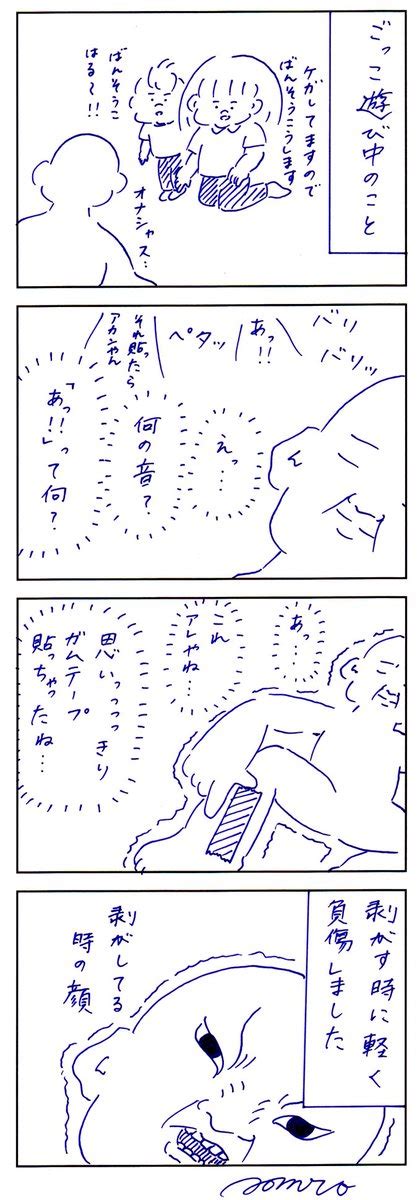 ごっこ遊び中のこと
ケガしてますので
ばんそうこうします
ばんそうこ
はる〜!!
オナシャス…
バリ
バリッ
あっ!!
ペタッ
それ貼ったら
アカンやん
えっ…
何の音?
「あっ!!」って何?
あっ…
これ
アレやね…
思いっっっっきり
ガムテープ
貼っちゃったね…
剥がす時に軽く
負傷しました
剥がしてる
時の顔